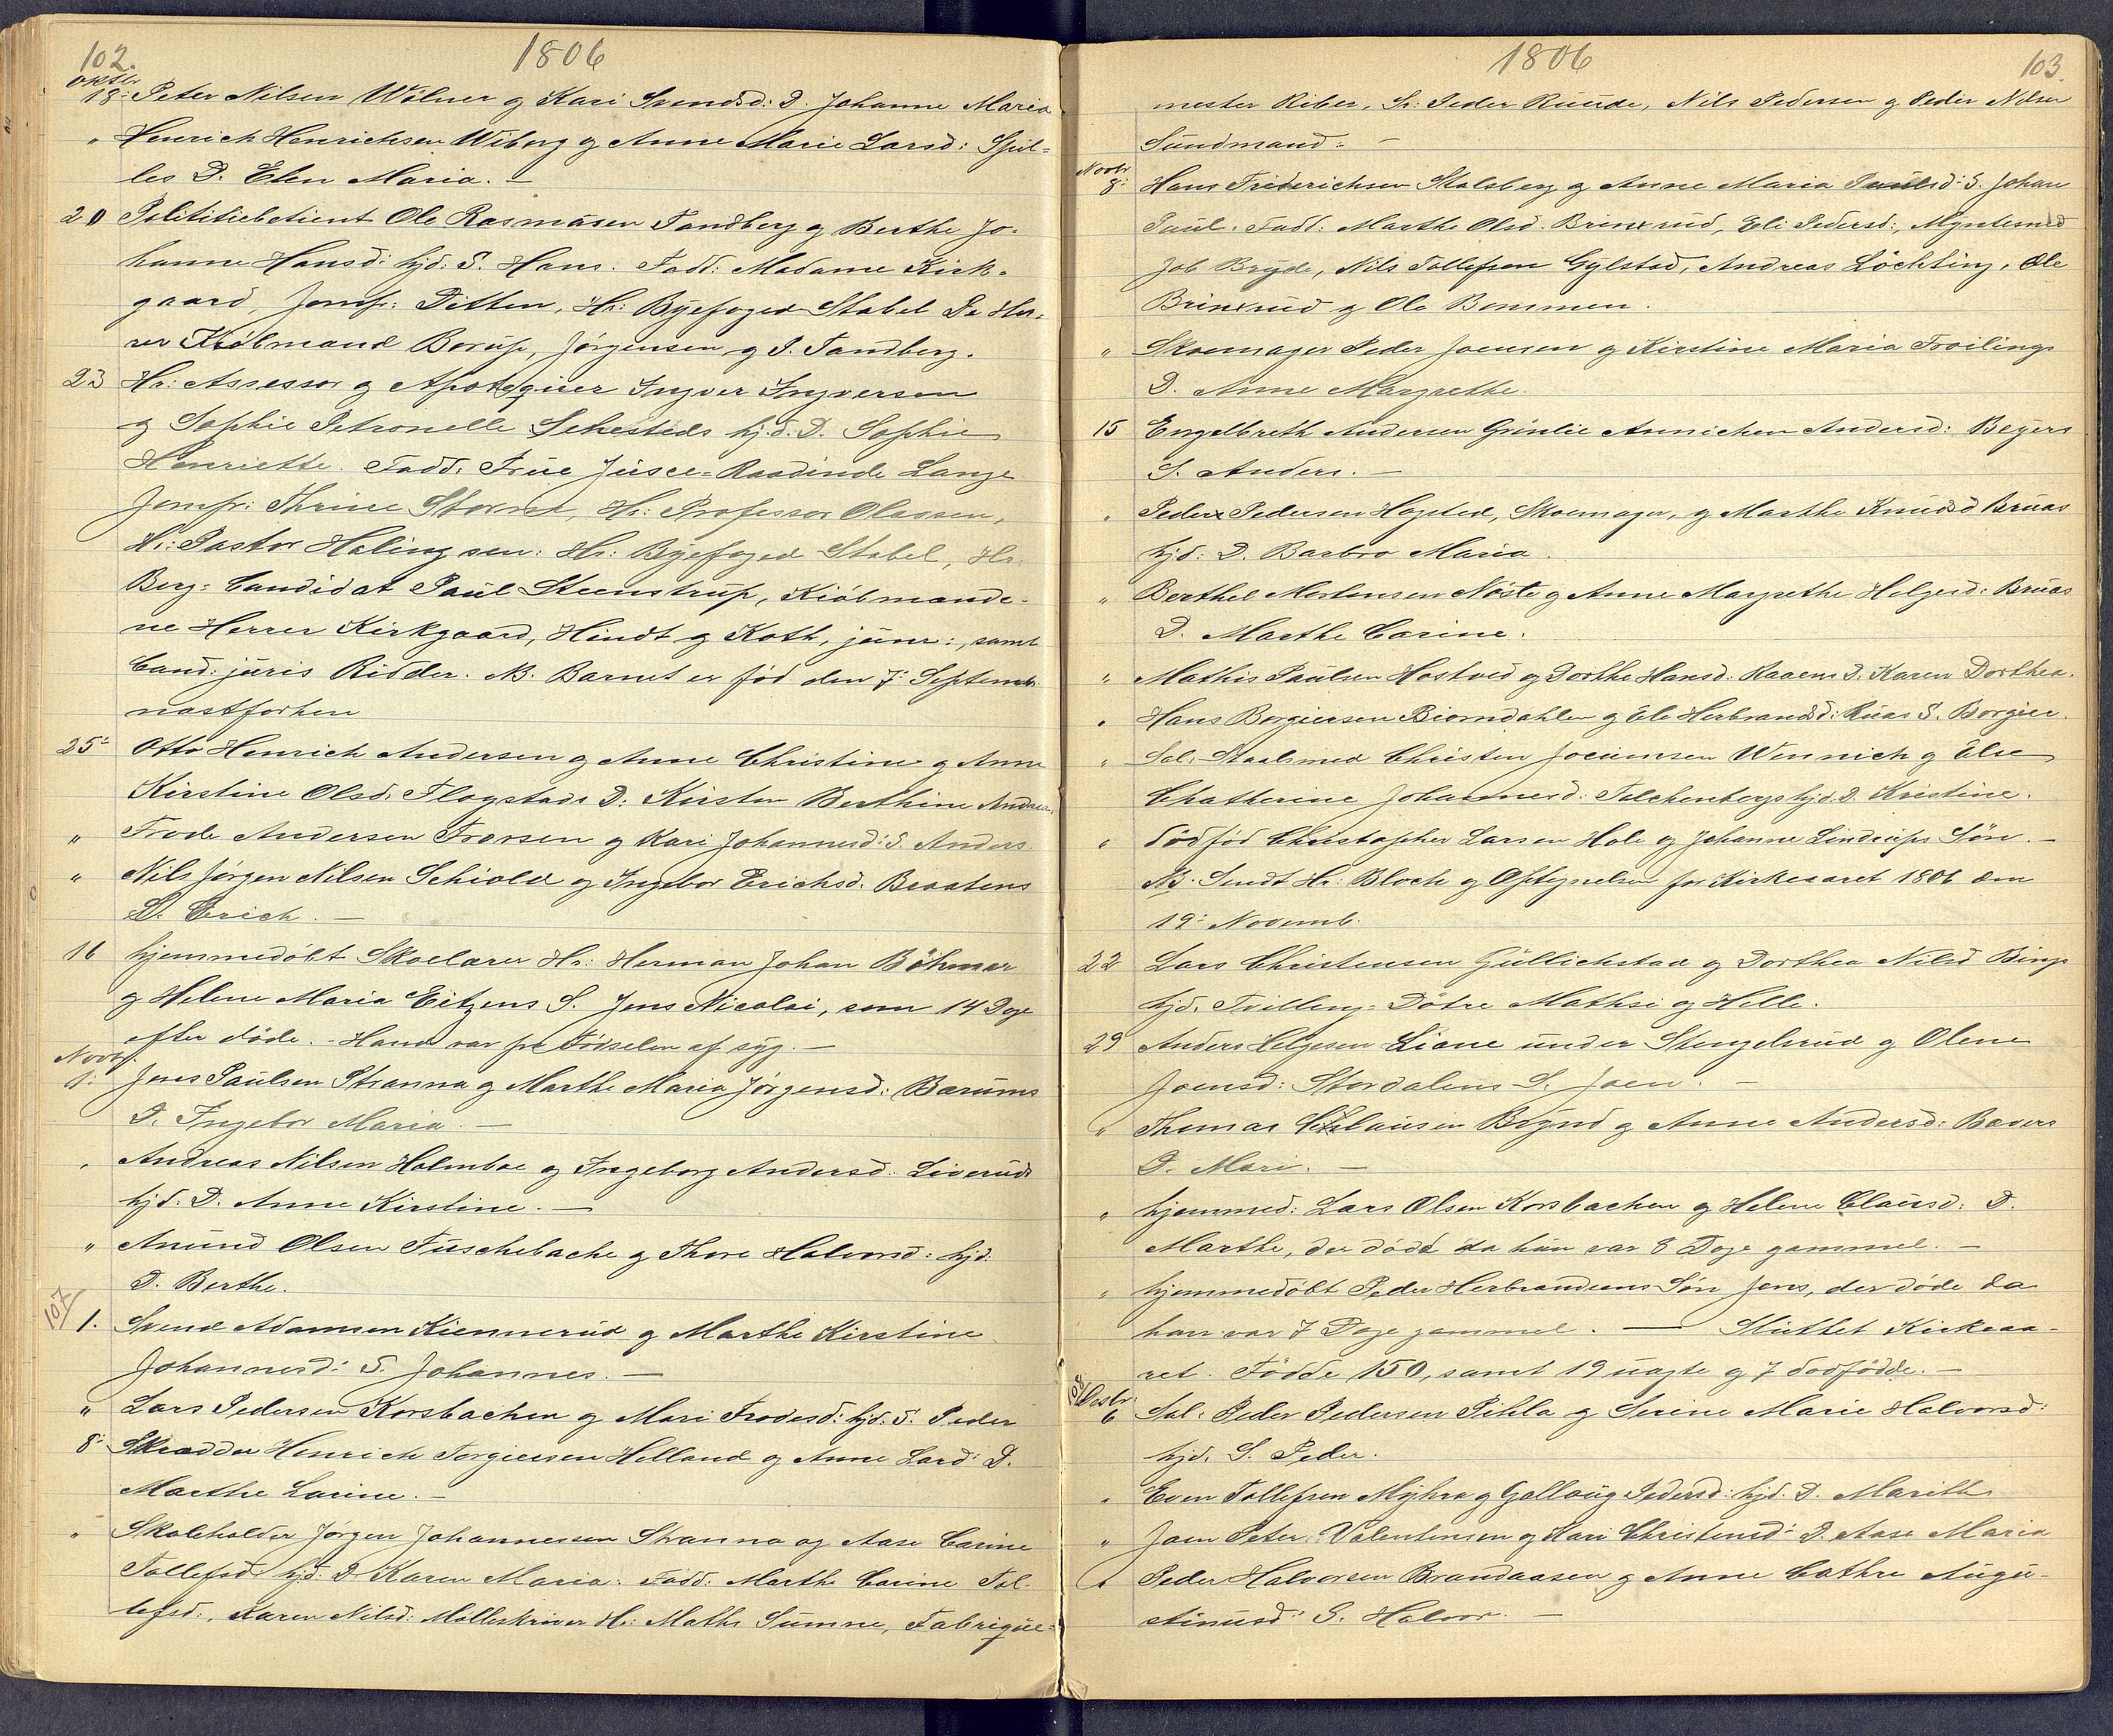 102.
1806
oktbr
18: Peter Nilsen Wölner og Kari Svendsd: D. Johanne Maria
" Henrich Henrichsen Wiborg og Anne Marie Larsd: Spil-
les D. Elen Maria. —
20 Polititiebetient Ole Rasmüsen Tandberg og Berthe Jo-
hanne Hansd: hjd: S. Hans. Fadd: Madame Kirk-
gaard, Jomfr: Ditten, Hr: Byefoged Stabel De Her-
rer Kiöbmand Borüp, Jörgensen og S. Tandberg.
23 Hr: Assessor og Apotequer Ingver Ingversen
og Sophie Petronelle Sehesteds hj.d. D. Sophie
Henriette. Fadd. Früe Jüsce-Raadinde Lange
Jomfr: Thrine Stormd, Hr: Professor Olassen,
Hr: Pastor Heling sen: Hr: Byefoged Stabel, Hr.
Berg-Candidat Paül Steenstrüp, Kiöbmænde-
ne Herrer Kirkgaard, Hindt og Koth, jünr:, samt
Cand: jüris Ridder. NB. Barnet er fód den 7: Septemb.
næstforhen
25: Otto Henrich Andersen og Anne Christine og Anne
Kirstine Olsd. Flagstads D: Kirsten Berthine Andrea.
" Frode Andersen Frorsen og Kari Johannesd: S. Anders
" Nils Jörgen Nilsen Schiold og Ingebor Erichsd. Beratens
S. Erich. —
16 hjemmedöbt Skoelærer Hr: Herman Johan Böhmer
og Helene Maria Eitzens S. Jens Nicolai, som 14 Dage
efter döde. - Hand var fra Födselen af syg. —
Novbr.
1: Jens Paülsen Stranna og Marthe Maria Jörgensd: Bærums
D. Ingebor Maria. —
" Andreas Nilsen Holmboe og Ingeborg Andersd. Liveruds
hjd: D. Anne Kirstine. —
" Amünd Olsen Füschebache og Thore Halvorsd: hjd:
D. Berthe.
107/
1. Svend Adamsen Kiennerüd og Marthe Kirstine
Johannesd: S. Johannes. —
" Lars Pedersen Korsbachen og Mari Frodesd: hjd: S. Peder
8: Skrædder Henrich Torgiersen Helland og Anne Larsd: D.
Marthe Larine. —
" Skoleholder Jörgen Johannesen Stranna og Aase Carine
Tollefsd: hjd: D. Karen Maria. Fadd: Marthe Carine Tol-
lefsd:, Karen Nilsd: Mölleskriver Hr: Maths Sümne, Fabriqüe-
1806
103.
mester Riber, Sr: Peder Ruude, Nils Pedersen og Peder Nilsen
Sündmand. —
Novbr
8: Hans Friderichsen Stalsberg og Anne Maria Paülsd: S. Johan
Paül. Fadd: Marthe Olsd. Brinxrüd, Eli Pedersd:, Myntesmed
Job Bryde, Nils Tollefsen Gylstad, Andreas Löchting, Ole
Brinxrüd og Ole Bommen.
" Skoemager Peder Joensen og Kirstine Maria Froilings
D. Anne Margrethe.
15 Engelbreth Andersen Grünlie Annichen Andersd: Beyers
S. Anders. —
" Peder Pedersen Hagsted, Skoemager, og Marthe Knüdsd Brüas
hjd: D. Barbro Maria.
" Berthel Mortensen Nöste og Anne Margrethe Helgesd: Brüas
D. Marthe Carine.
" Mathis Paülsen Hostved og Dorthe Hansd: Raaens D. Karen Dorthea.
" Hans Borgiersen Biorndahlen og Eli Herbrandsd: Rüas S. Borgier.
" Sal. Staalsmed Christen Jocümsen Wennich og Else
Chatherine Johannesd: Falchenbergs hjd. D. Kristine.
" dödföd Christopher Larsen Hole og Johanne Lindrüps Sön. —
NB. Sendt Hr: Bloch og Optegnelsen for Kirkeaaret 1806 den
19: Novemb.
22 Lars Christensen Güllichstad og Dorthea Nilsd Bings
hjd. Tvilling-Dötre Mathsi og Helle.
29 Anders Helgesen Liane ünder Stengelsrüd og Olene
Joensd: Stordalens S. Joen. —
" Thomas Claüsen Bögnd og Anne Andersd: Bævers
D. Mari. —
" hjemmed: Lars Olsen Korsbachen og Helene Claüsd: D.
Marthe, der döde da hün var 8 Dage gammel. —
" hjemmedöbt Peder Herbrandsens Sön Jens, der döde da
han var 7 Dage gammel. — Slüttet Kirkeaa-
ret. Födde 150, samt 19 üægte og 7 dodfödde. —
108/
Decbr
6 Sal. Peder Pedersen Pihla og Serine Marie Halvorsd:
hjd. S. Peder.
" Even Tollefsen Myhre og Gollaüg Pedersd: hjd. D. Marith
" Joen Peter Valentinsen og Kari Christensd: D. Aase Maria
" Peder Halvorsen Brandaasen og Anne Cathre Aügü-
stinüsd: S. Halvor. —